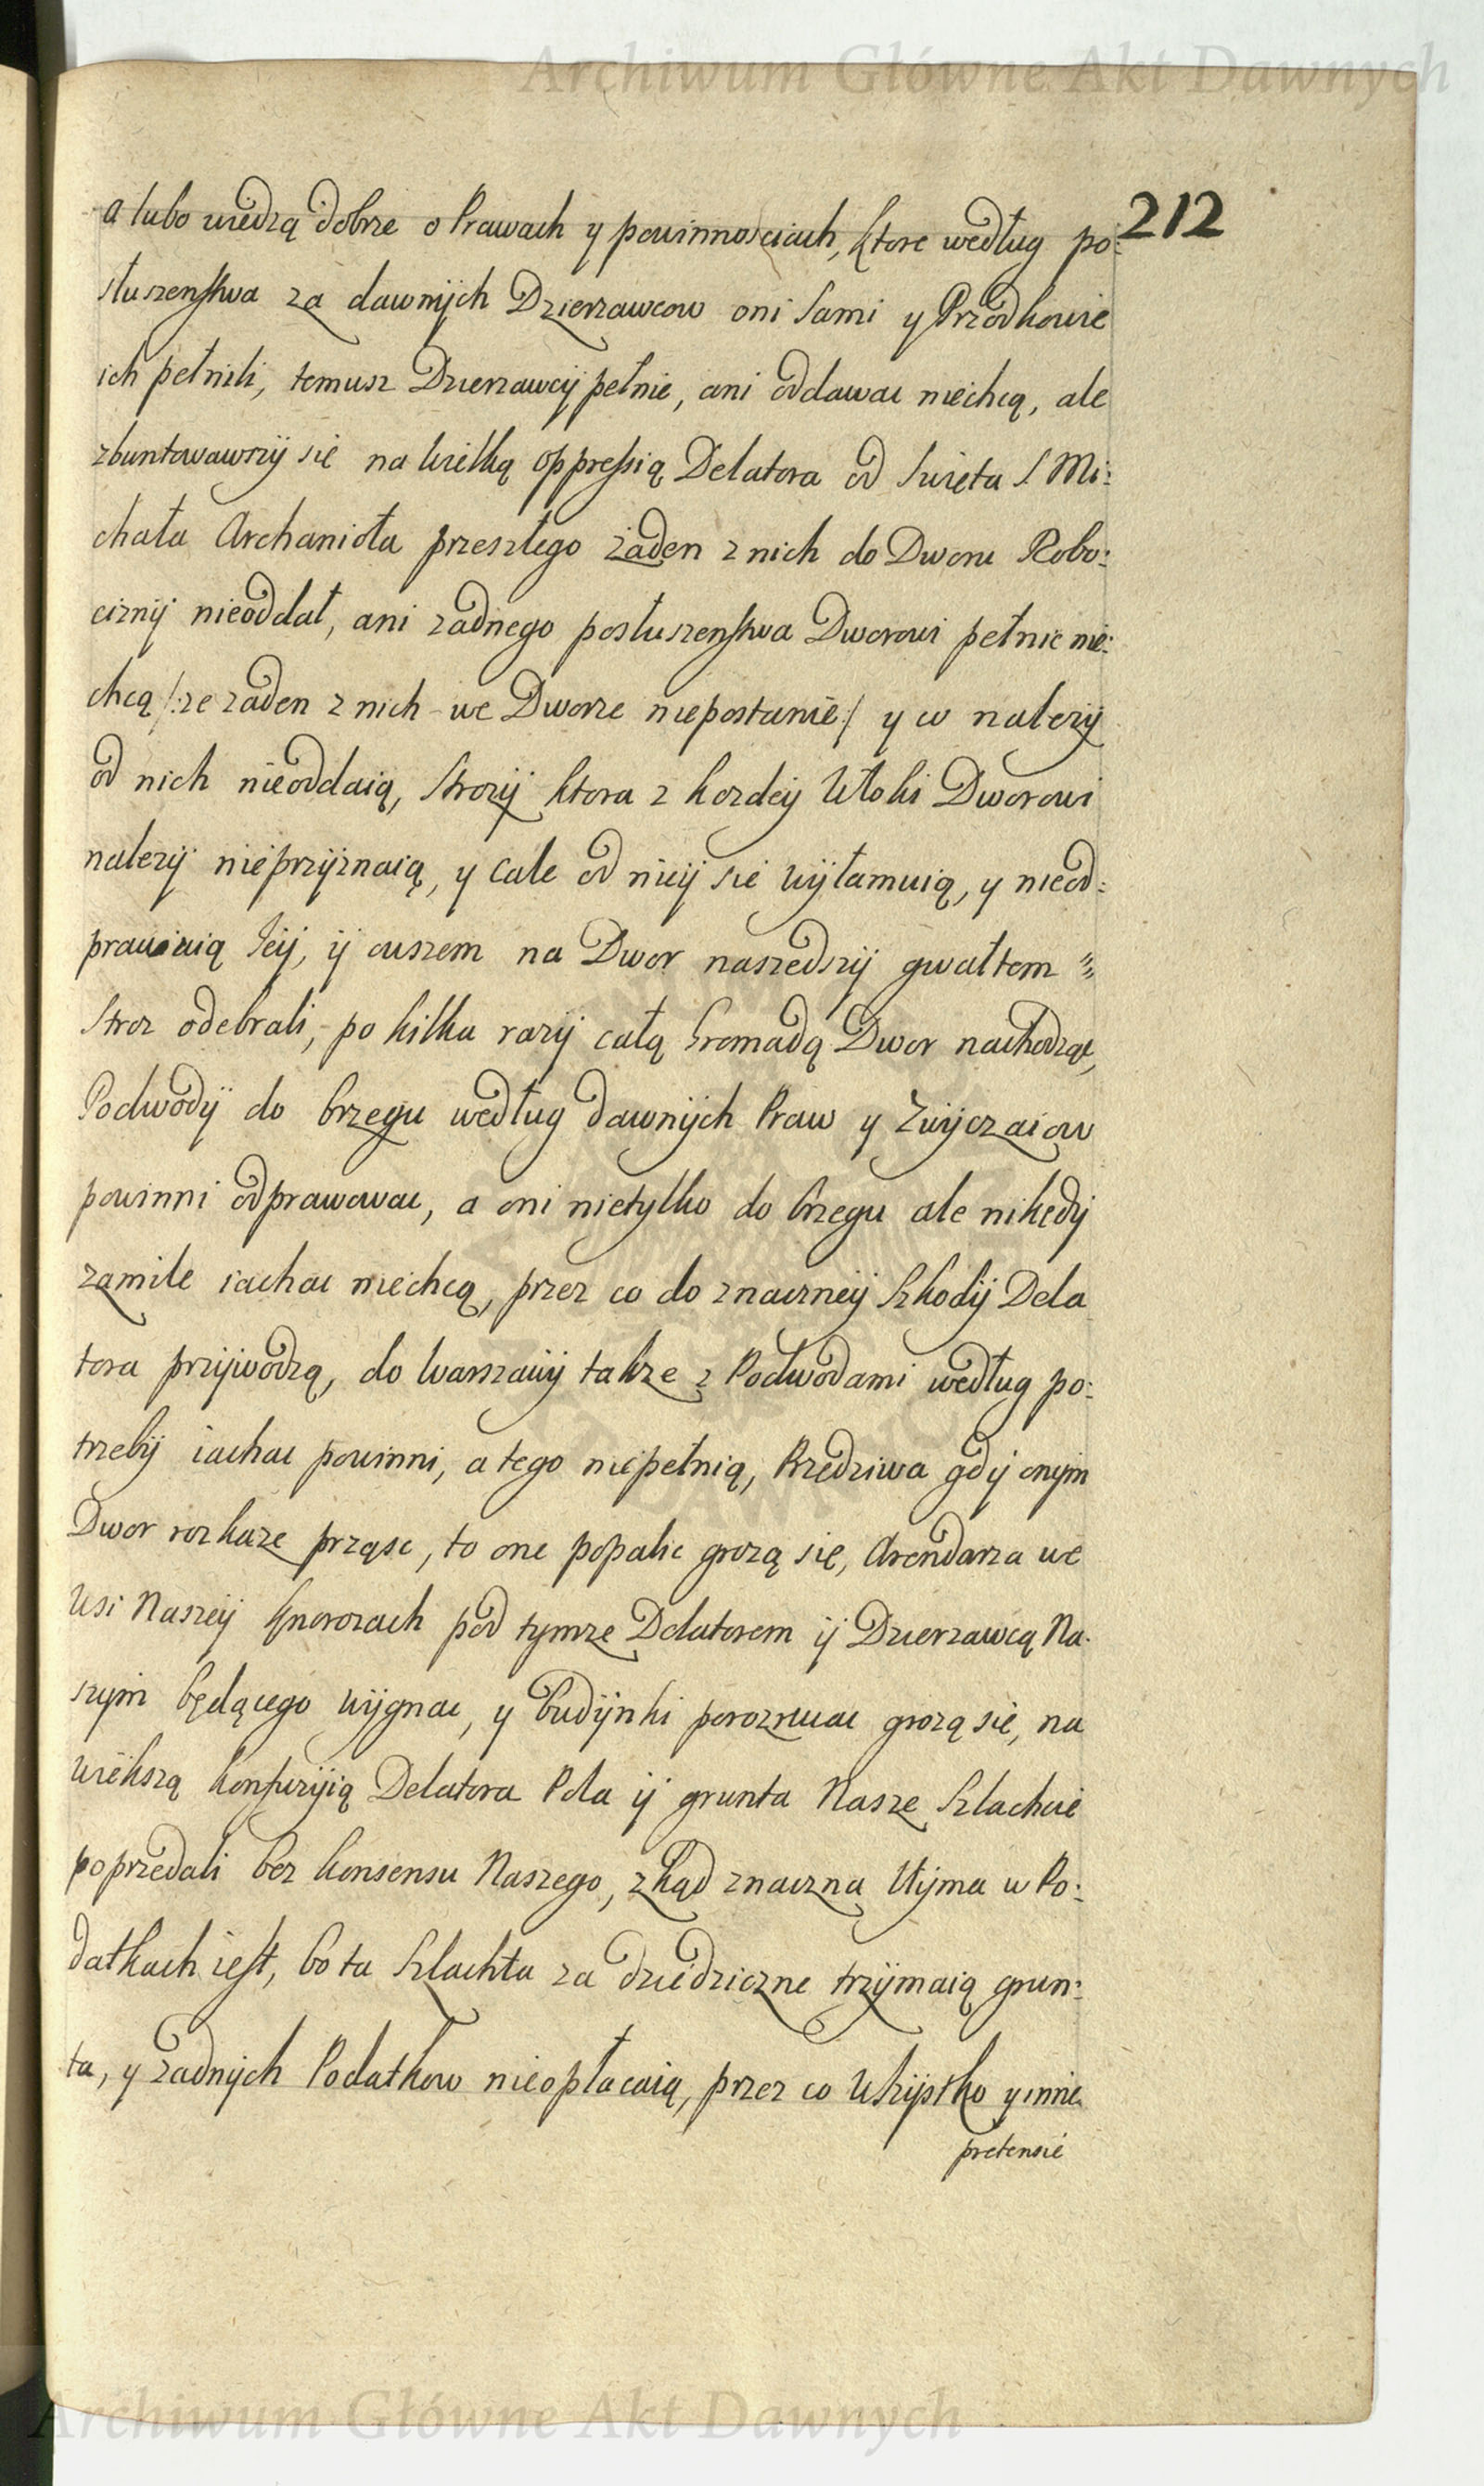 Archiwum Główne Akt Dawnych
212
a lubo wiedzą dobrze o Prawach y powinnosciach, ktore według po:
słuszenstwa za dawnych Dzierzawcow oni sami y Przodkowie
ich pełnili, temusz Dzierzawcÿ pełnic, ani oddawac niechcą, ale
zbuntowawszÿ się na wielką oppressią Delatora od swięta S Mi:
chała Archanioła przeszłego żaden z nich do Dworu Robo:
ciznÿ nieoddał, ani zadnego posłuszenstwa Dworowi pełnic nie:
chcą /:ze zaden z nich we Dworze niepostanie:/ y co nalezÿ
od nich nieoddaią, Strozÿ ktora z kozdeÿ Włoki Dworowi
nalezÿ nieprzÿznaią, y cale od nieÿ się wÿłamuią, y nieod:
prawuią Jeÿ, ÿ owszem na Dwor naszedszÿ gwałtem
Stroz odebrali, po kilka razÿ całą Gromadą Dwor nachodząc,
Podwodÿ do brzegu według dawnÿch Praw y Zwÿczaiow
powinni odprawowac, a oni nietylko do brzegu ale nikędÿ
zamile iachac niechcą, przez co do znaczneÿ Szkodÿ Dela
tora przÿwodzą, do Warszawÿ takze z Podwodami według po:
trzebÿ iachac powinni, a tego niepełnią, Przędziwa gdÿ onÿm
Dwor rozkaze prząsc, to one popalic grozą się, Arendarza we
Wsi Naszeÿ Knorozach pod tymze Delatorem ÿ Dzierzawcą Na:
szÿm będącego wÿgnac, y budÿnki porozrucac grozą się, na
większą konfuzÿią Delatora Pola ÿ grunta Nasze Szlachcie
poprzedali bez konsensu Naszego, zkąd znaczna Uÿma w Po:
datkach iest, bo ta Szlachta za dziedziczne trzÿmaią grun:
ta, y zadnÿch Podatkow nieopłacaią, przez co Wszÿstko y inne
pretensie
Archiwum Główne Akt Dawnych